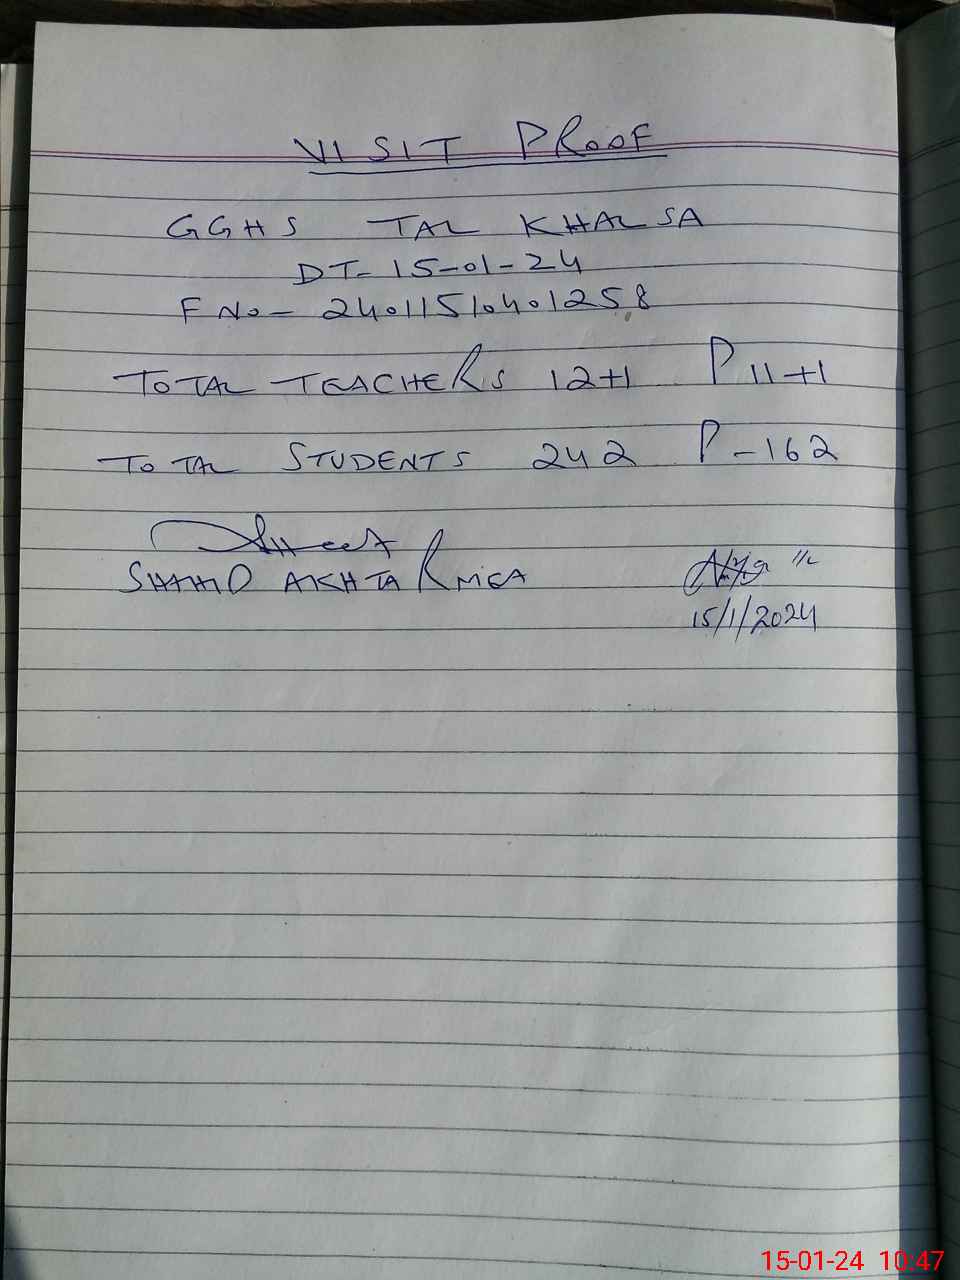 VISIT PROOF
GGHS TAL KHALSA
DT- 15-01-24
F No- 24011510401258
TOTAL TEACHERS 12+1 P 11+1
TOTAL STUDENTS 242 P-162
SHAHID AKHTAR MEA
15/1/2024
15-01-24 10:47